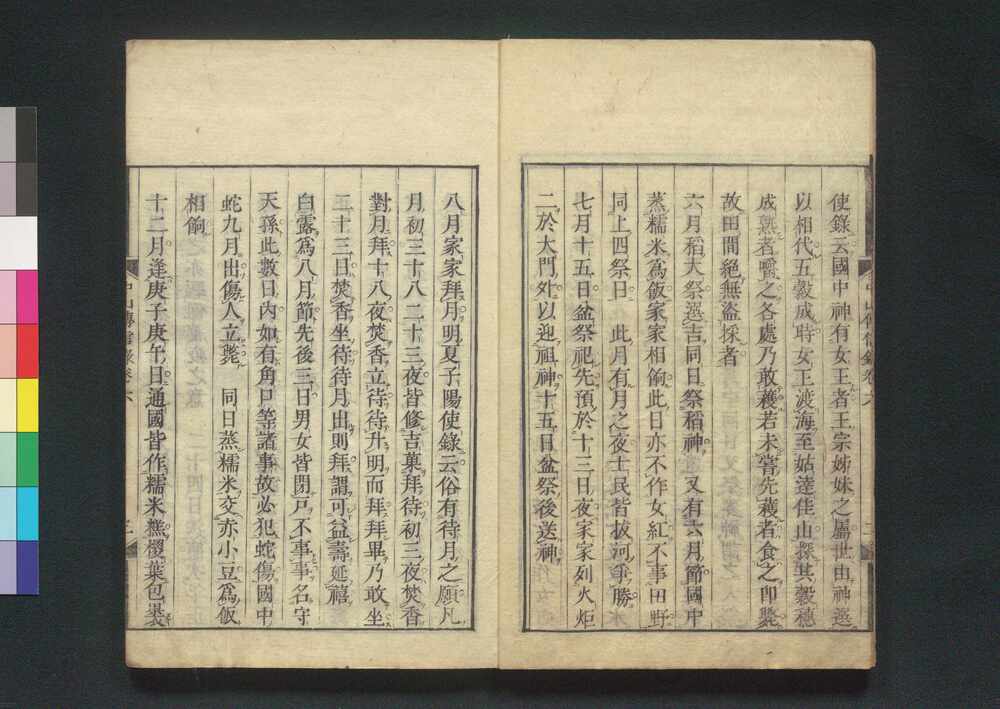 使錄云國中神有女王者王宗姊妹之屬世由神選
以相代五穀成時女王渡海至姑達佳山採其穀穗
成熟者嚼之各處乃敢穫若未嘗先穫者食之卽斃
故田間絕無盜採者
六月稻大祭選吉同日祭稻神 又有六月節國中
蒸糯米爲飯家家相餉此日亦不作女紅不事田野
同上四祭日 此月有月之夜士民皆拔河爭勝
七月十五日盆祭祀先預於十三日夜家家列火炬
二於大門外以迎祖神十五日盆祭後送神
中山傳信錄卷六
八月家家拜月明夏子陽使錄云俗有待月之願凡
月初三十八二十三夜皆修吉菓拜待初三夜焚香
對月拜十八夜焚香立待待升明而拜拜畢乃敢坐
二十三日焚香坐待待月出則拜謂可益壽延禧
白露爲八月節先後三日男女皆閉戶不事事名守
天孫此數日內如有角口等諸事故必犯蛇傷國中
蛇九月出傷人立斃 同日蒸糯米交赤小豆爲飯
相餉
十二月逢庚子庚午日通國皆作糯米糕㯶葉包裹
中山傳信錄卷六
三